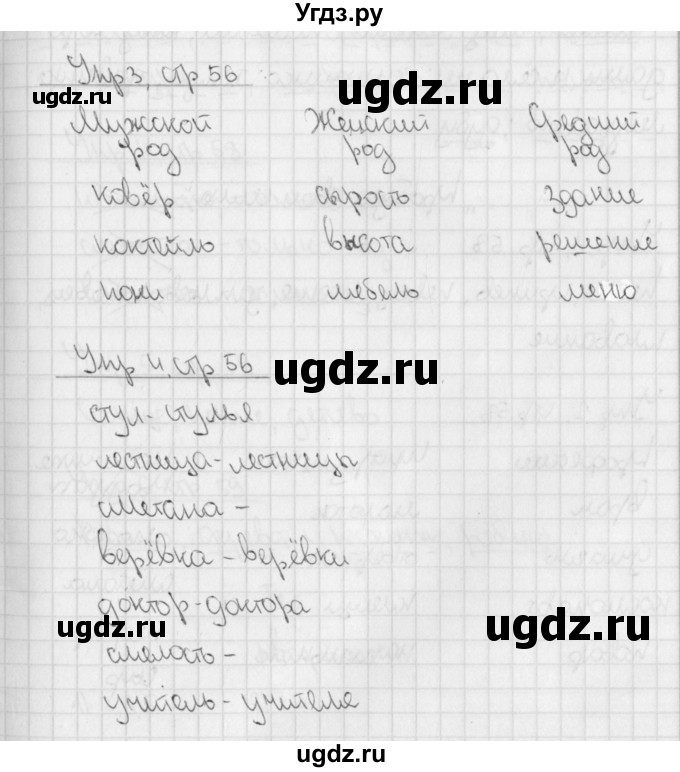 Угдз.ру
Упр 3, стр 56
ugdz.ru
ugdz.ru
Мужской род
Женский род
Средний род
ковёр сырость здание
коктейль высота решение
пони мебель меню
ugdz.ru
ugdz.ru
Упр 4, стр 56
ugdz.ru
стул - стулья
лестница - лестницы
ugdz.ru
сметана -
верёвка - верёвки
доктор - доктора
ugdz.ru
ugdz.ru
смелость -
учитель - учителя
ugdz.ru